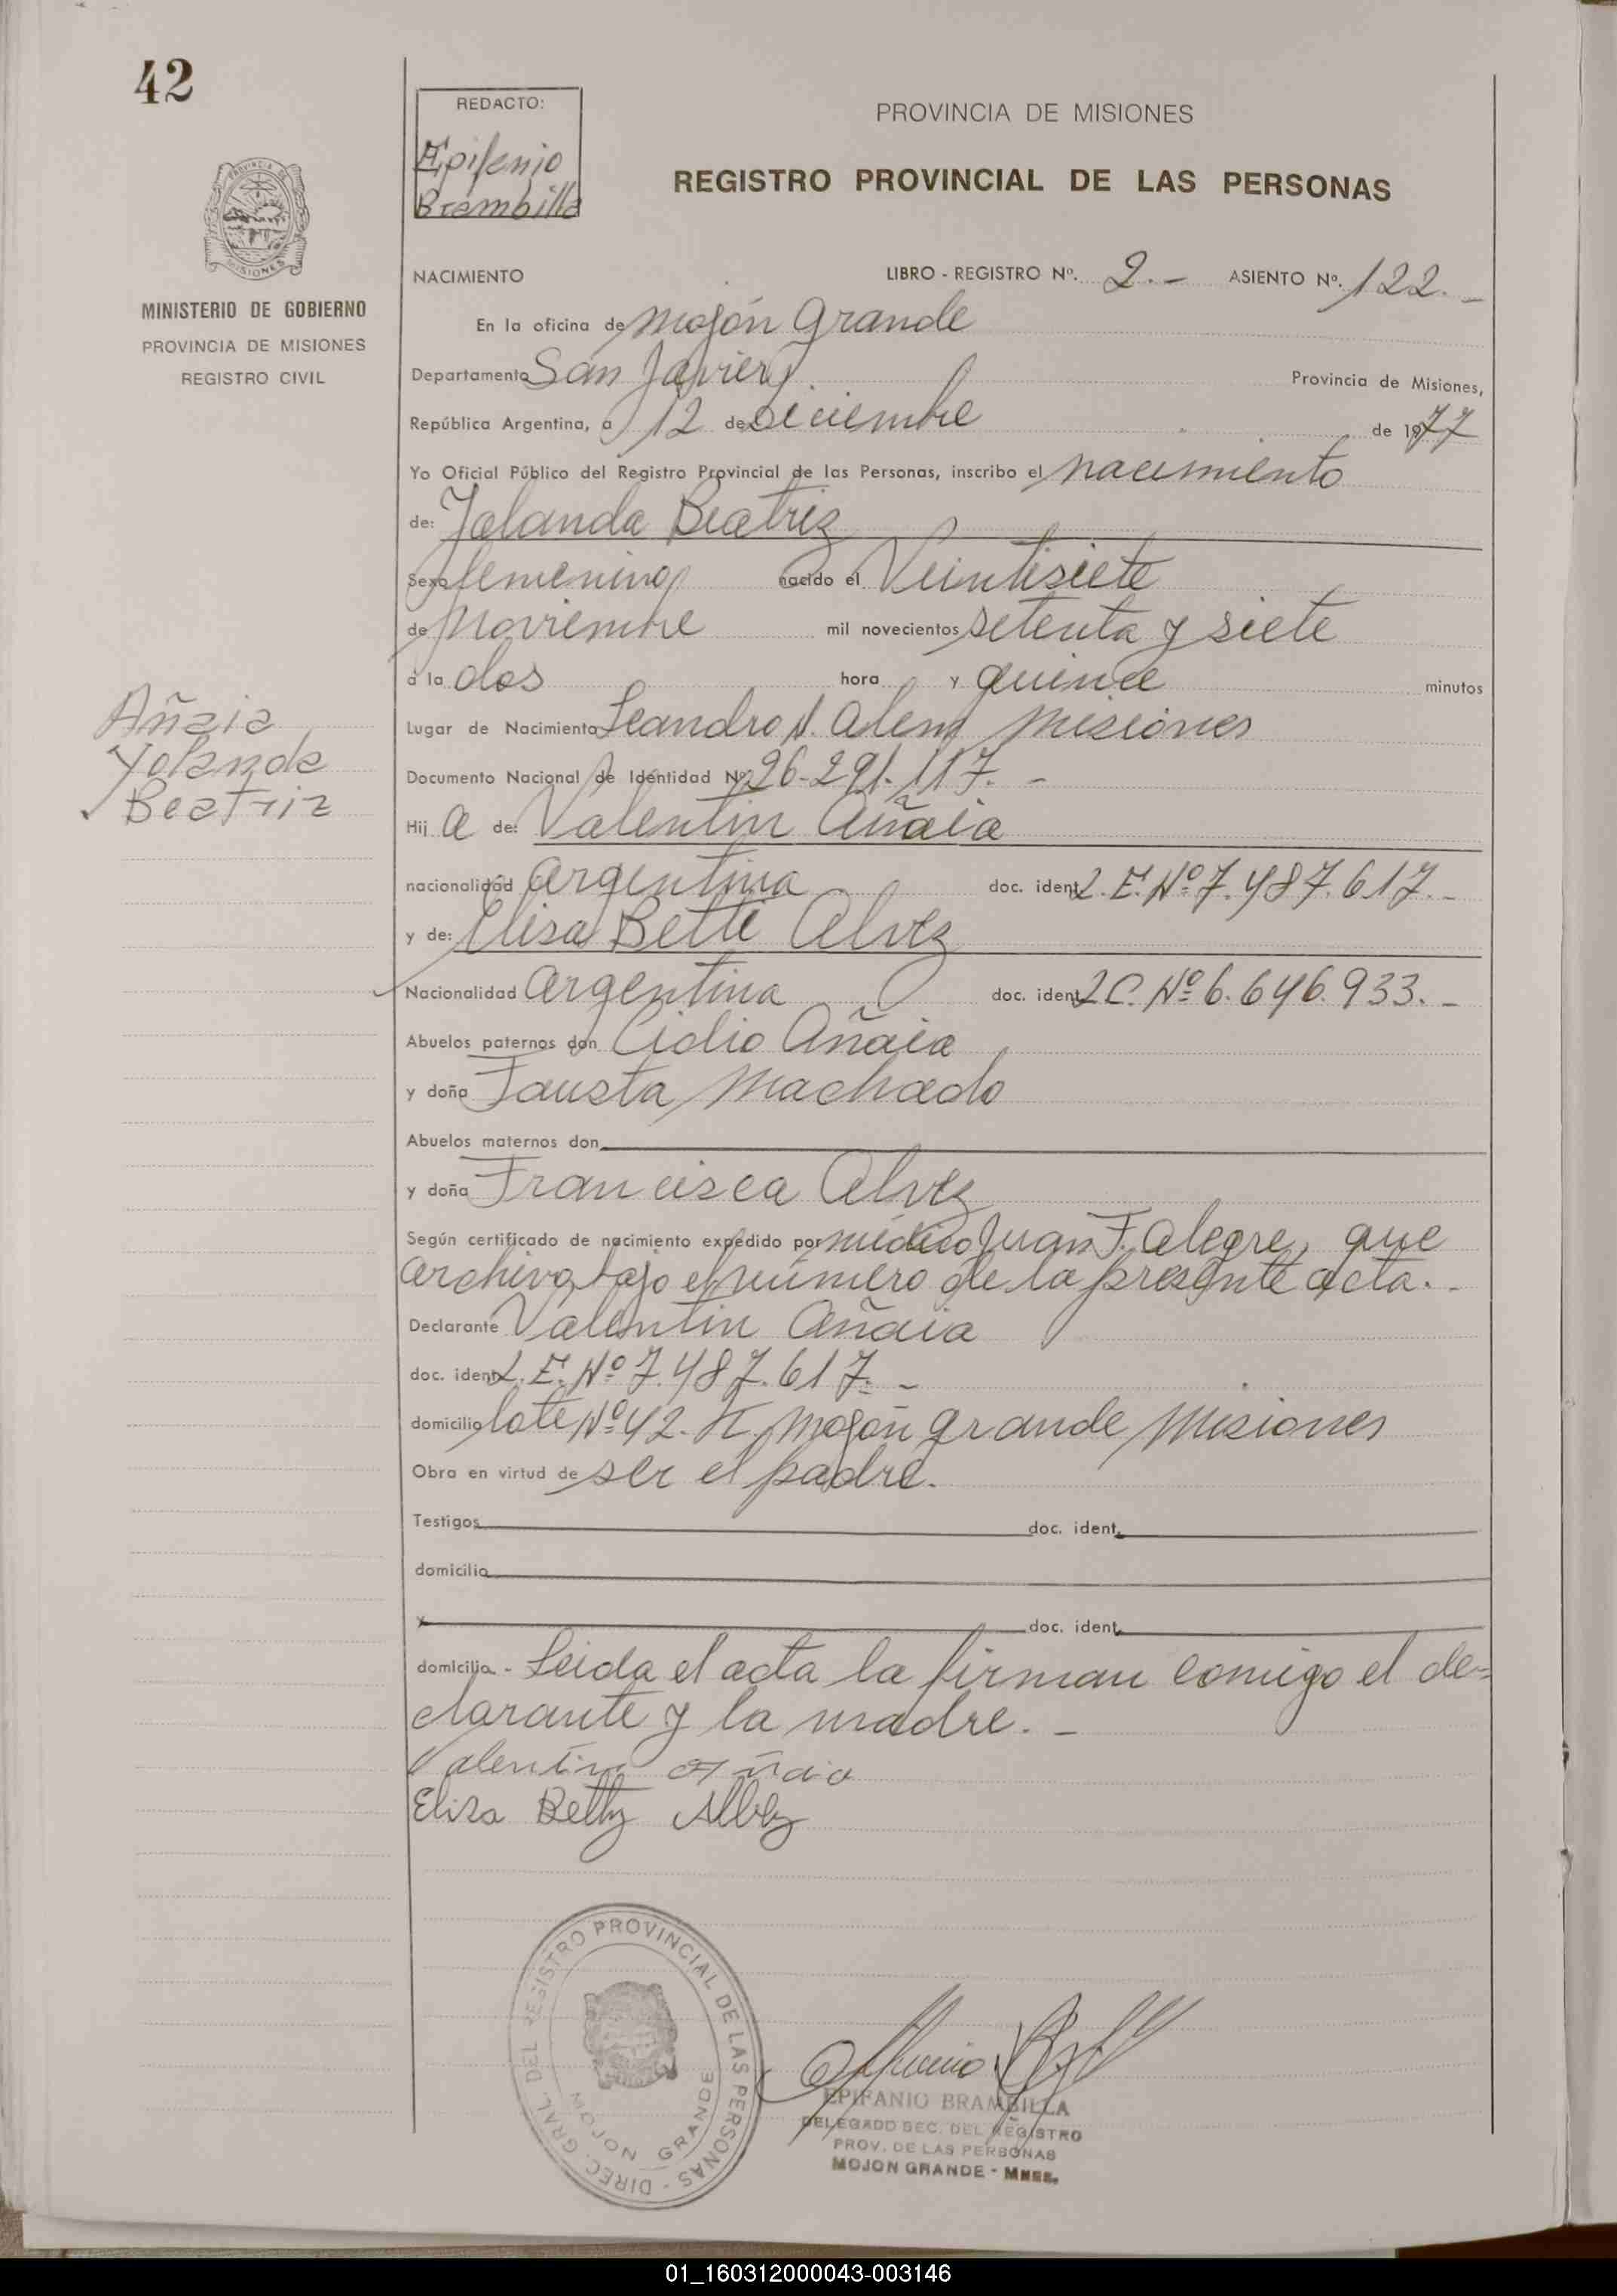 42
REDACTO:
Epifanio
Brambilla
PROVINCIA DE MISIONES
REGISTRO PROVINCIAL DE LAS PERSONAS
PROVINCIA DE
MISIONES
MINISTERIO DE GOBIERNO
PROVINCIA DE MISIONES
REGISTRO CIVIL
NACIMIENTO LIBRO - REGISTRO Nº. 2.- ASIENTO Nº. 122.-
En la oficina de Mojón Grande
Departamento San Javier Provincia de Misiones,
República Argentina, a 12 de Diciembre de 1977
Yo Oficial Público del Registro Provincial de las Personas, inscribo el nacimiento
de: Yolanda Beatriz
Sexo femenino nacido el Veintisiete
de Noviembre mil novecientos setenta y siete
a la dos hora y quince minutos
Lugar de Nacimiento Leandro N. Alem Misiones
Documento Nacional de Identidad Nº 26.291.117.-
Añaia
Yolanda
Beatriz
Hij a de: Valentin Añaia
nacionalidad Argentina doc. ident. L.E. Nº 7.487.617.-
y de: Elisa Betti Alvez
Nacionalidad Argentina doc. ident. L.C. Nº 6.646.933.-
Abuelos paternos don Cidio Añaia
y doña Fausta Machado
Abuelos maternos don
y doña Francisca Alvez
Según certificado de nacimiento expedido por médico Juan F. Alegre, que
archivo bajo el número de la presente acta.-
Declarante Valentin Añaia
doc. ident. L.E. Nº 7.487.617.-
domicilio lote Nº 42. Mojón Grande Misiones
Obra en virtud de ser el padre.
Testigos doc. ident.
domicilio
y doc. ident.
domicilio - Leida el acta la firman comigo el de=
clarante y la madre.-
Valentin Añaia
Elisa Betty Albez
DIREC. GRAL. DEL REGISTRO PROVINCIAL DE LAS PERSONAS -
MOJON GRANDE
EPIFANIO BRAMBILLA
DELEGADO SEC. DEL REGISTRO
PROV. DE LAS PERSONAS
MOJON GRANDE - MNES.
01_160312000043-003146